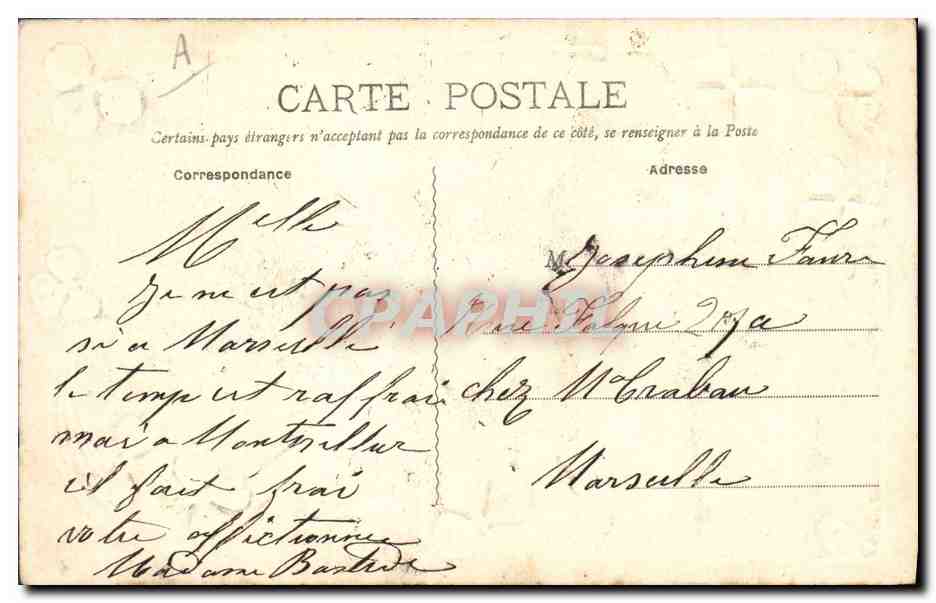 A
CARTE POSTALE
Certains pays étrangers n'acceptent pas la correspondance de ce côté, se renseigner à la Poste
Correspondance
Melle
Je ne est pas
si a Marseille
le temp est raffrai
mai a Montpellier
il fait frai
votre affictionnée
Madame Bastide
Adresse
M Josephine Faure
Rue 27a
chez Mr Crabau
Marseille
CPAPHIL